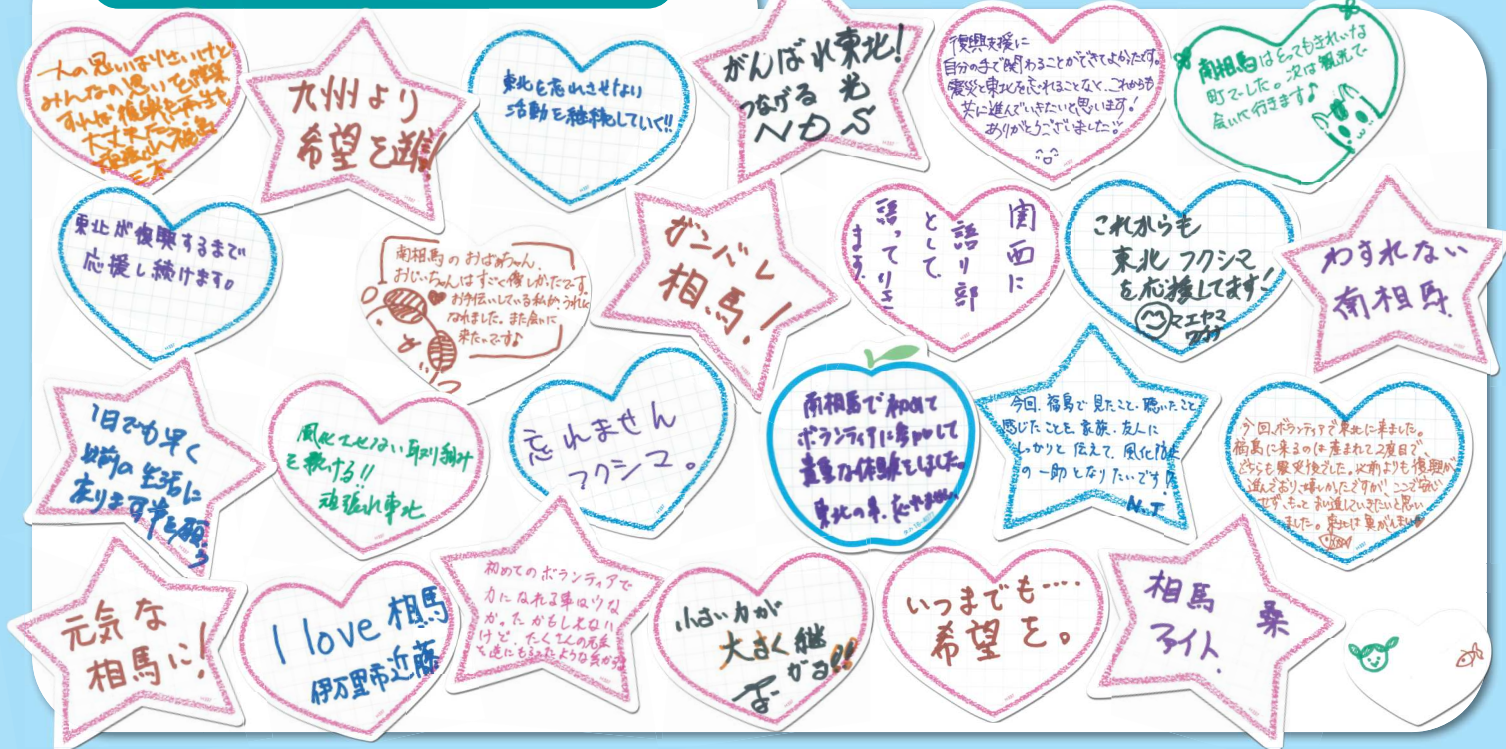 人の思いは小さいけど
みんなの思いを
すれば復興も再生も
大丈夫だ
九州より
希望を
東北を忘れさせない
活動を継続していく!!
がんばれ東北!
つなげる光
NDS
復興支援に
自分の手で関わることができてよかったです。
震災と東北を忘れることなく、これからも
共に進んでいきたいと思います!
ありがとうございました!!
南相馬はとってもきれいな
町でした。次は観光で
会いに行きます♪
東北が復興するまで
応援し続けます。
南相馬のおばあちゃん、
おじいちゃんはすごく優しかったです。
お手伝いしている私がうれしく
なれました。また会いに
来たいです♪
ガンバレ
相馬!
関西に
語り部
として
語っていき
ます。
これからも
東北 フクシマ
を応援してます!
マエヤマ
わすれない
南相馬.
1日でも早く
以前の生活に
戻ります事を願う
風化させない取り組み
を続ける!!
頑張れ東北
忘れません
フクシマ。
南相馬で初めて
ボランティアに参加して
貴重な体験をしました。
東北の事、忘れません
今回、福島で見たこと、聴いたこと
感じたことを家族、友人に
しっかりと伝えて、風化防止
の一助となりたいです!
N.T
今回、ボランティアで東北に来ました。
福島に来るのは産まれて2度目で、
どちらも震災後でした。以前よりも復興が
進んでおり嬉しかったですが、ここで安心
せず、もっと
ました。
元気な
相馬に!
I love 相馬
伊万里市近藤
初めてのボランティアで
力になれる事は少な
かったかもしれない
けど、たくさんの元気
を逆にもらったような気が
小さい力が
大きく継
がる!!
いつまでも‥‥
希望を。
相馬
ファイト.
桑